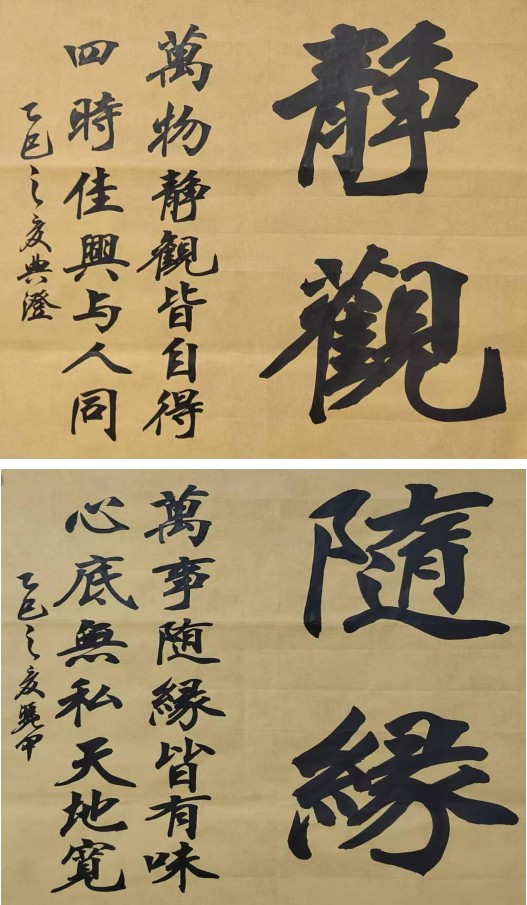 靜觀
萬物靜觀皆自得
四時佳興与人同
乙巳之夏典澄
隨緣
萬事随緣皆有味
心底無私天地寬
乙巳之夏